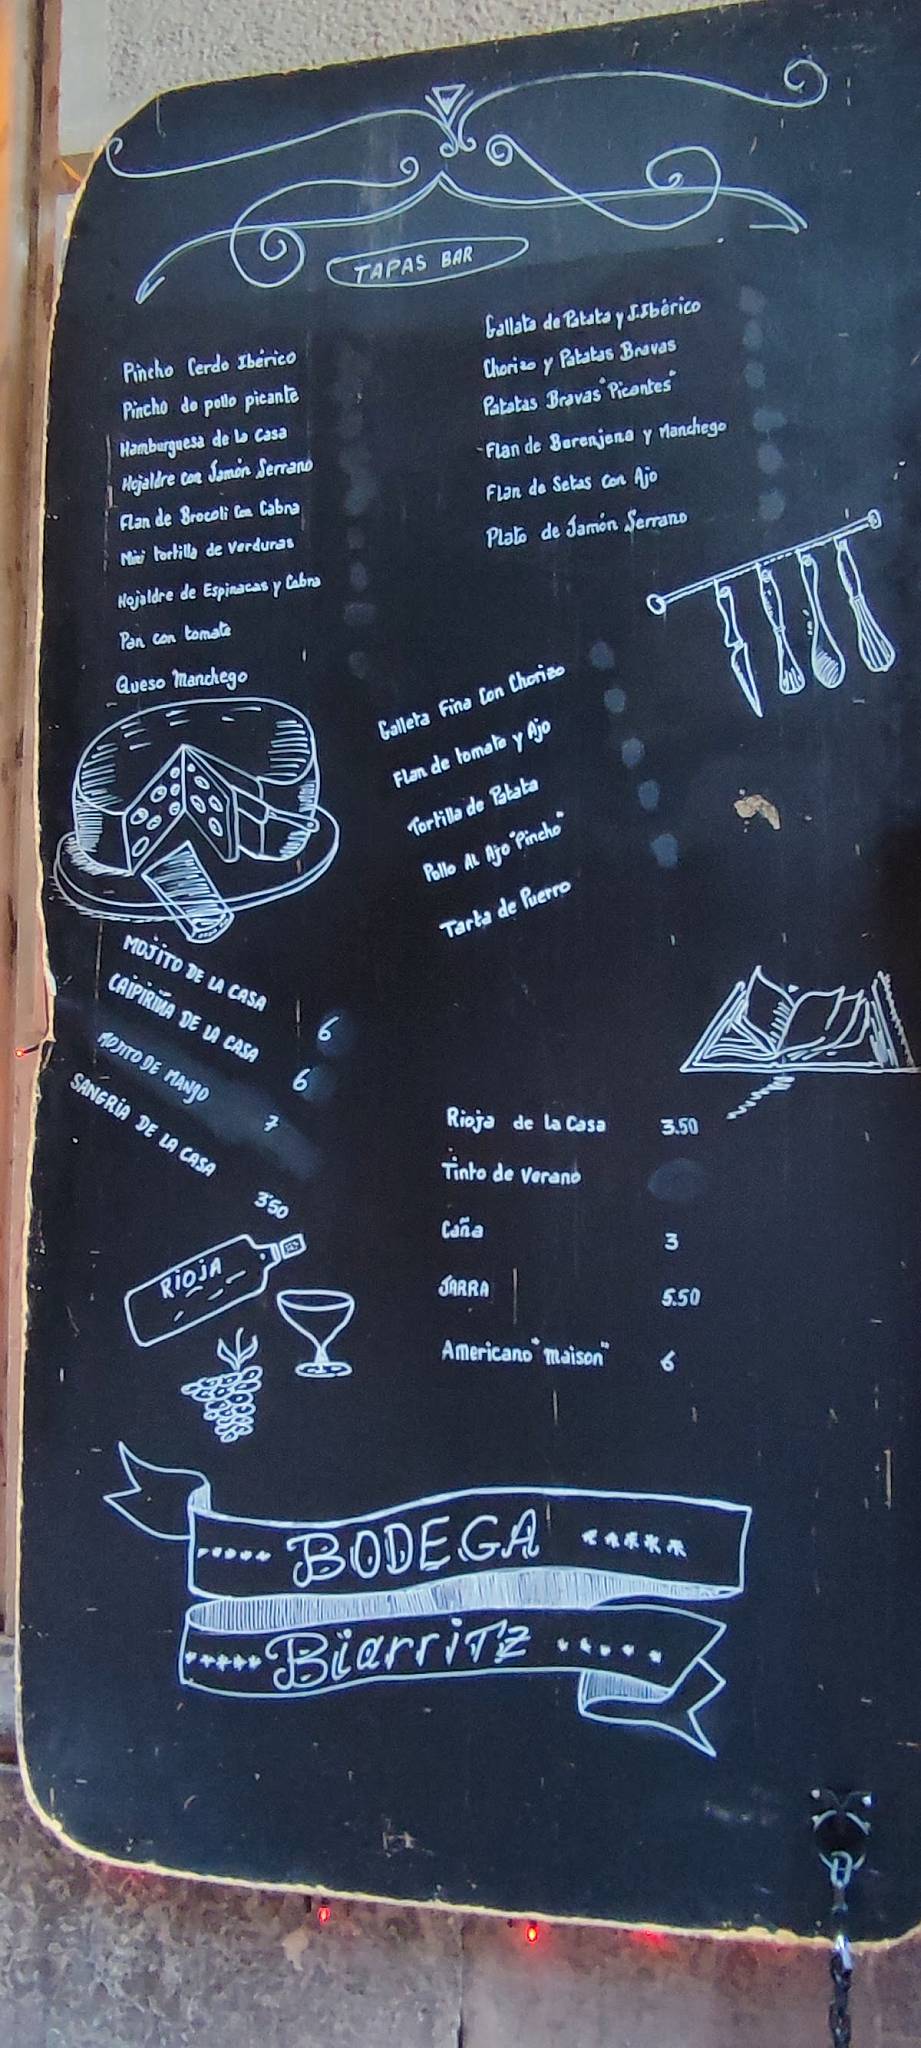 TAPAS BAR
Pincho Cerdo Ibérico
Pincho de pollo picante
Hamburguesa de la casa
Hojaldre con Jamón Serrano
Flan de Brocoli Con Cabra
Mini tortilla de Verduras
Hojaldre de Espinacas y Cabra
Pan con tomate
Queso Manchego
Galleta de Patata y J.Ibérico
Chorizo y Patatas Bravas
Patatas Bravas "Picantes"
Flan de Berenjena y Manchego
Flan de Setas con Ajo
Plato de Jamón Serrano
Galleta Fina Con Chorizo
Flan de tomate y Ajo
Tortilla de Patata
Pollo Al Ajo "Pincho"
Tarta de Puerro
MOJITO DE LA CASA 6
CAIPIRIÑA DE LA CASA 6
MOJITO DE MANGO 7
SANGRIA DE LA CASA 3'50
RIOJA
Rioja de la Casa 3.50
Tinto de Verano
Caña 3
JARRA 5.50
Americano "maison" 6
BODEGA
Biarritz